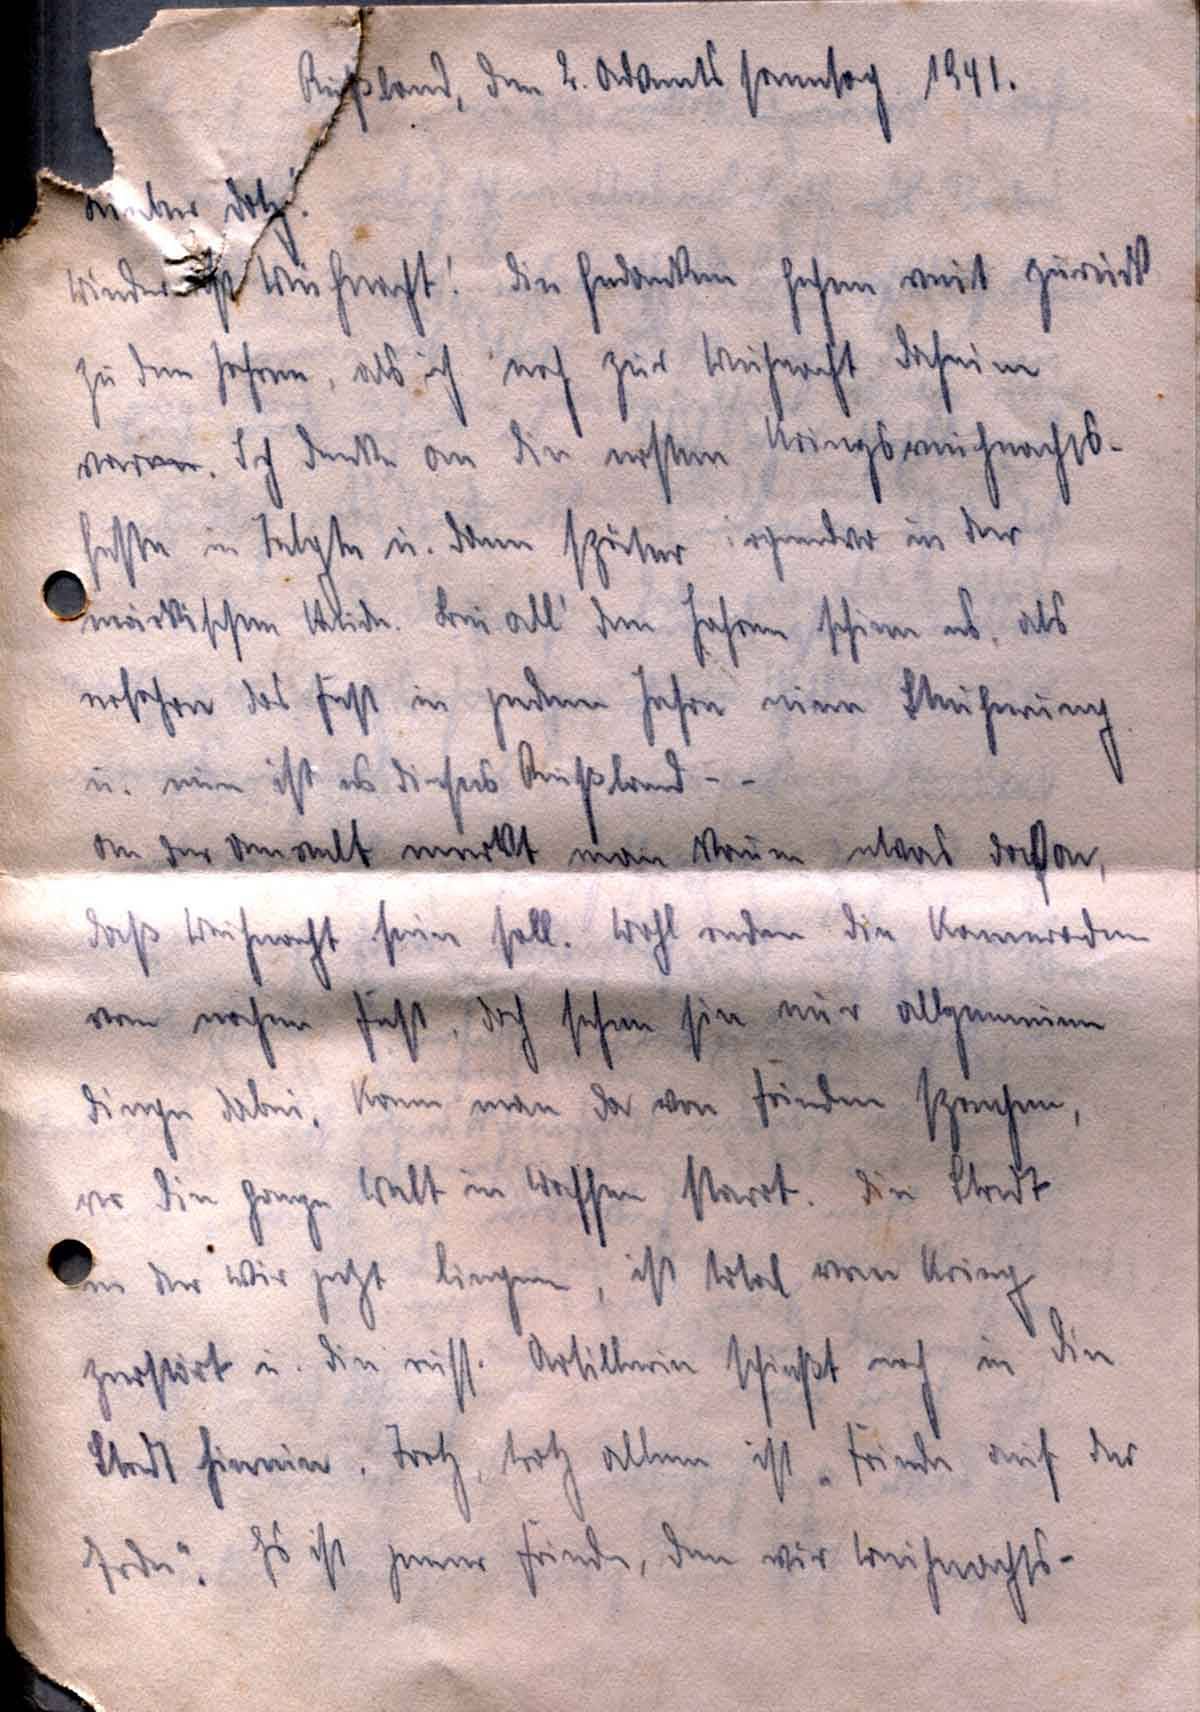 Rußland, den 2. Advents sonntag 1941.
Lieber Dotz!
Wieder ist Weihnacht! Die Gedanken gehen weit zurück
zu den Jahren, als ich noch zur Weihnacht daheim
war. Ich denke an die ersten Kriegsweihnachts-
feste in Telgte u. dann später irgendwo in der
märkischen Heide. Bei all' den Jahren schien es, als
erfahre das Fest in jedem Jahre eine Steigerung
u. nun ist es dieses Rußland - -
An der Umwelt merkt man kaum etwas davon,
daß Weihnacht sein soll. Wohl reden die Kameraden
vom nahen Fest, doch sehen sie nur allgemeine
Dinge dabei. Kann man da von Frieden sprechen,
wo die ganze Welt in Waffen starrt. Die Stadt
in der wir jetzt liegen, ist total vom Krieg
zerstört u. die russ. Artillerie schießt noch in die
Stadt hinein. Trotz, trotz allem ist „Friede auf der
Erde“. Es ist jener Friede, den wir Weihnachts-